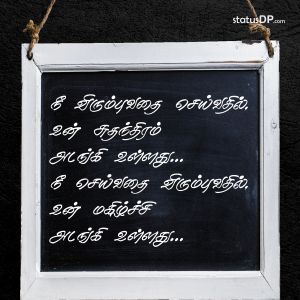 statusDP.com
நீ விரும்புவதை செய்வதில்,
உன் சுதந்திரம்
அடங்கி உள்ளது...
நீ செய்வதை விரும்புவதில்,
உன் மகிழ்ச்சி
அடங்கி உள்ளது...